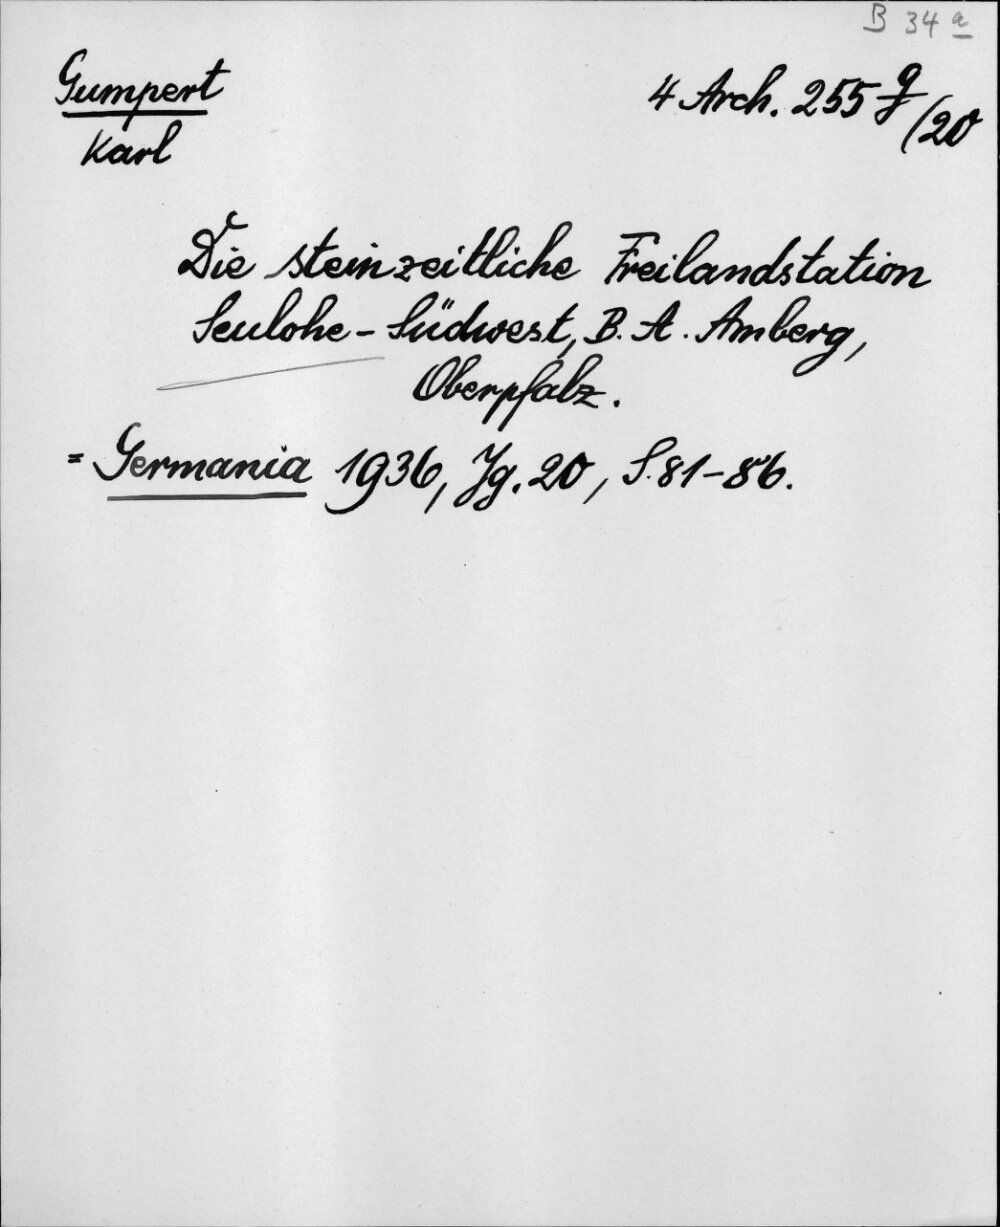 B 34 a
Gumpert
Karl
4 Arch. 255 g/f /20
Die steinzeitliche Freilandstation
Seulohe - Südwest, B. A. Amberg,
Oberpfalz.
= Germania 1936, Jg. 20, S. 81-86.